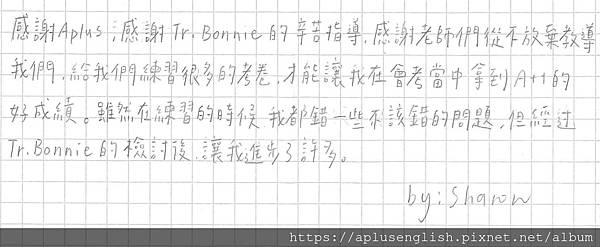 感謝Aplus；感謝Tr.Bonnie的辛苦指導，感謝老師們從不放棄教導
我們，給我們練習很多的考卷，才能讓我在會考當中拿到A++的
好成績。雖然在練習的時候，我都錯一些不該錯的問題，但經過
Tr.Bonnie的檢討後，讓我進步了許多。
by:Sharon
https://aplusenglish.pixnet.net/album